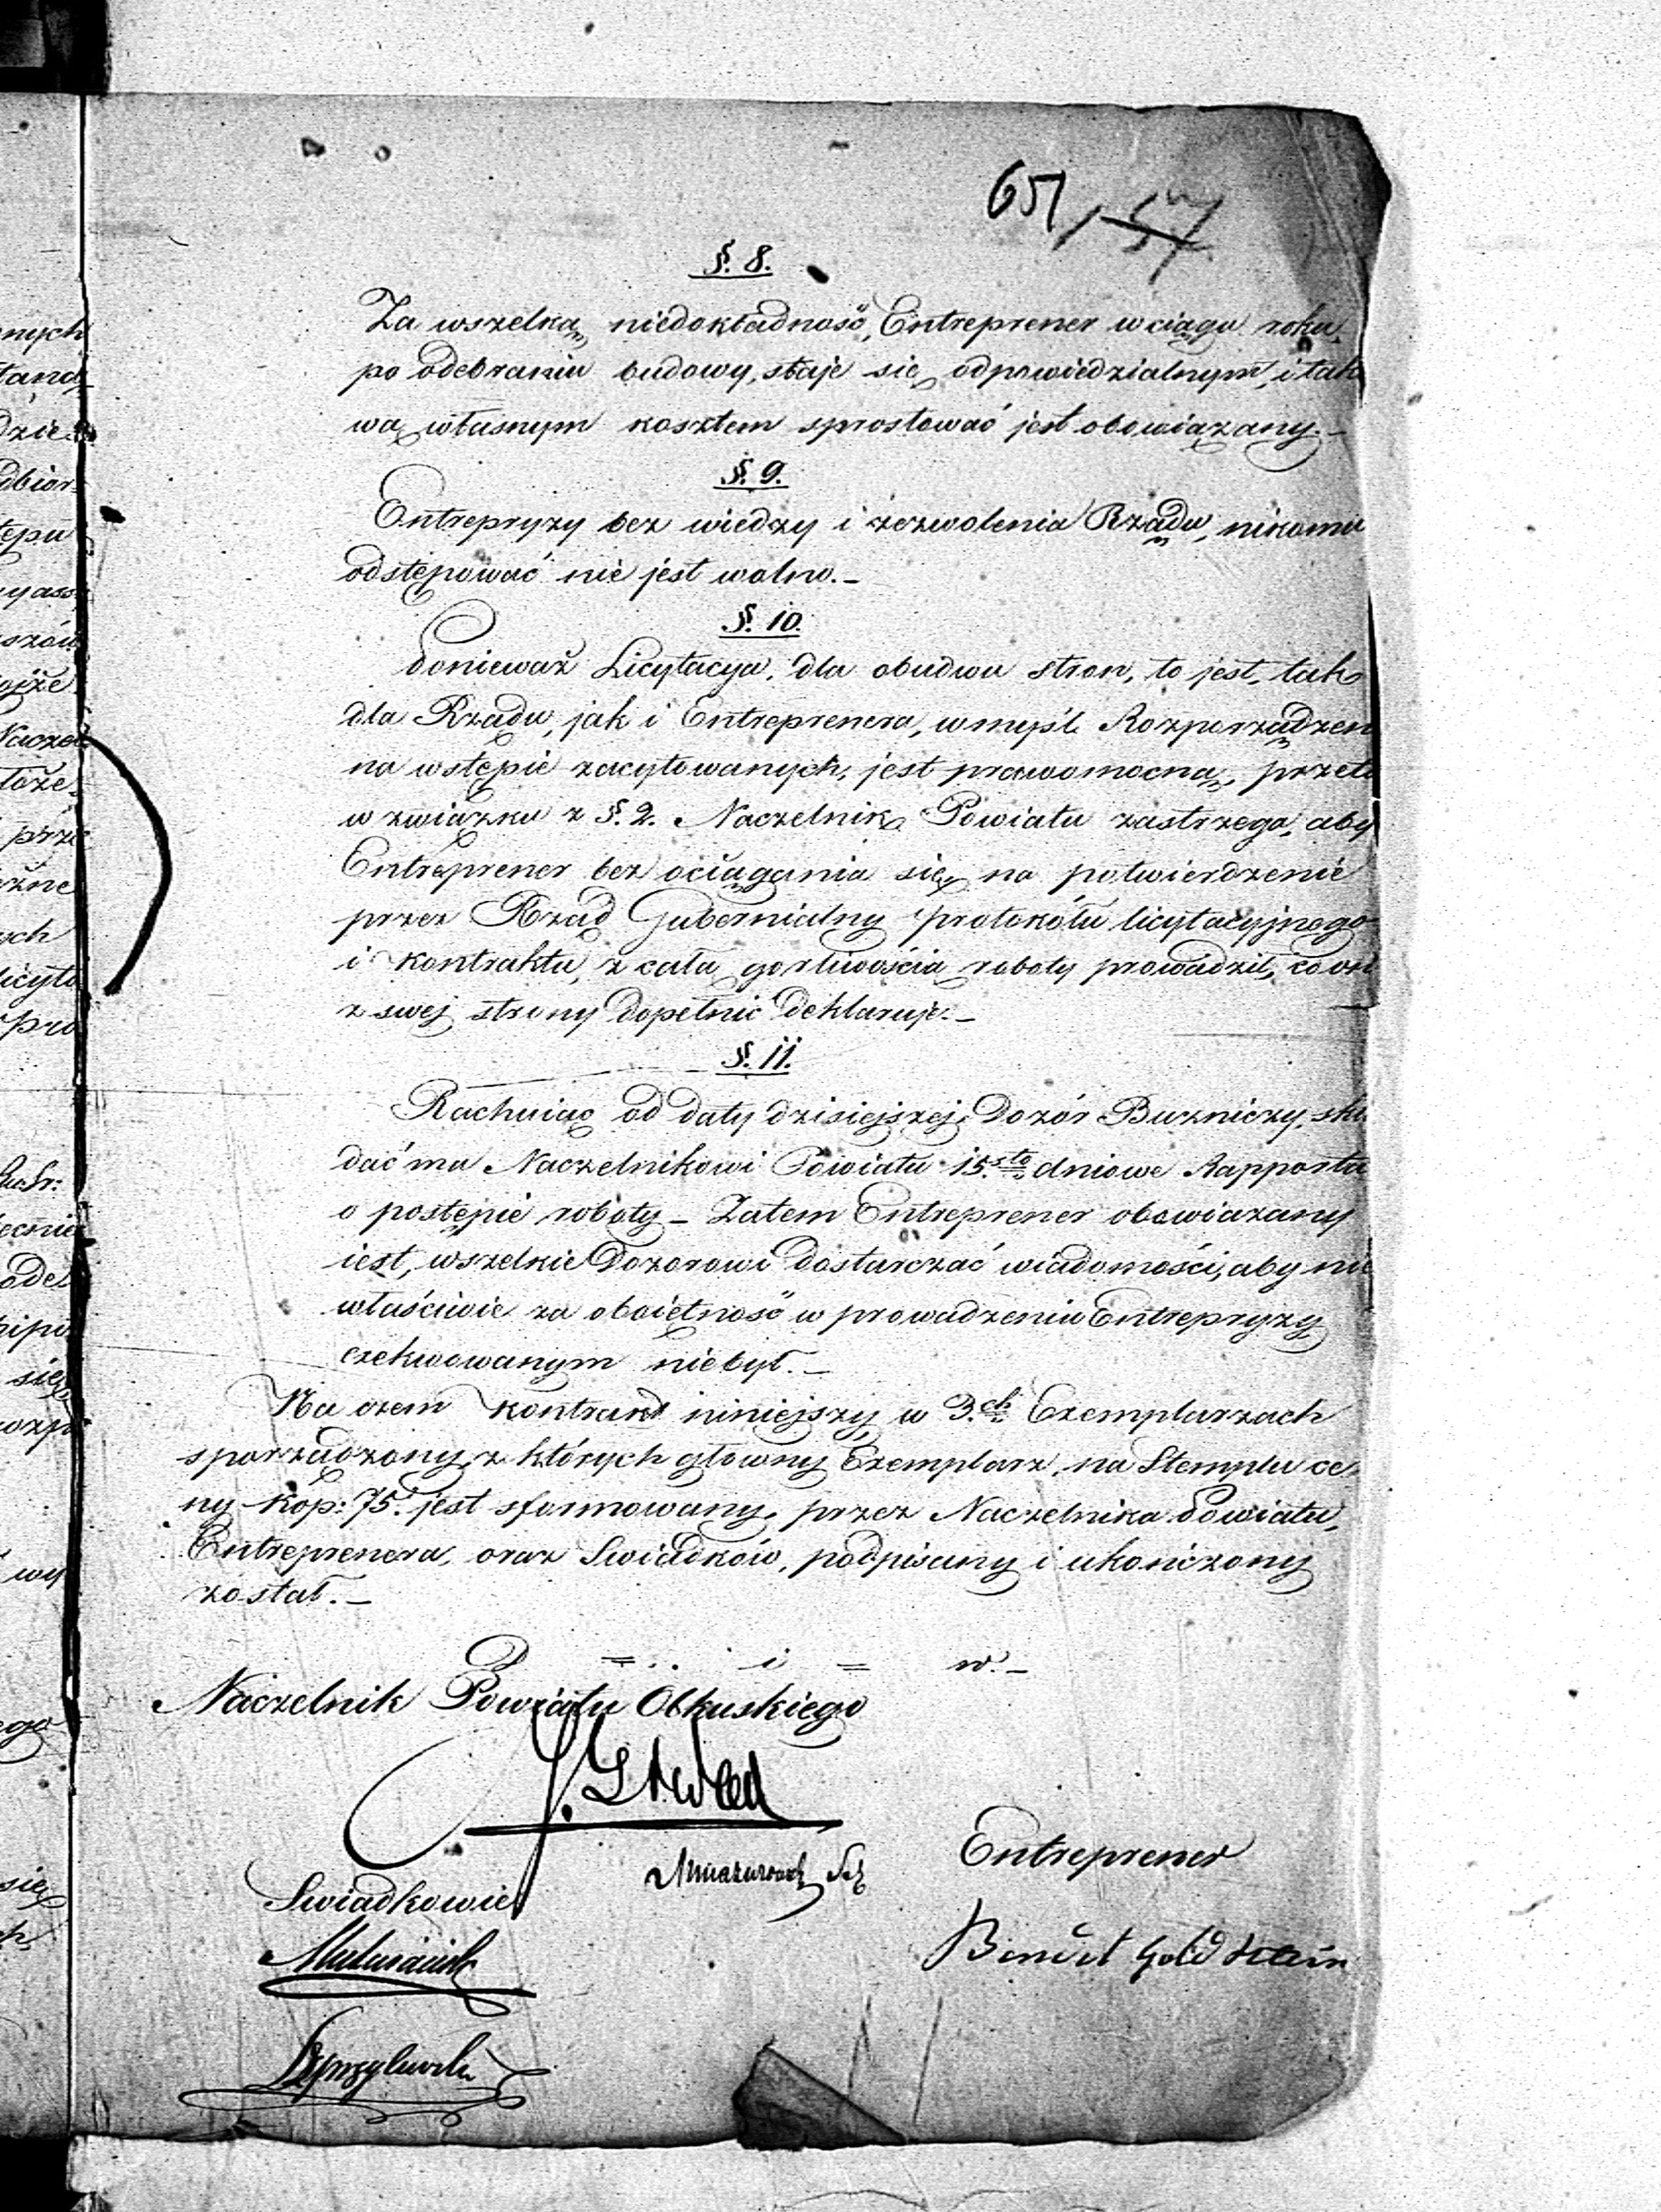 65/ 57
§. 8.
Za wszelką niedokładność, Entreprener w ciągu roku
po odebraniu budowy, staje się odpowiedzialnym, i tako
wą własnym kosztem sprostować jest obowiązany._
§. 9.
Entrepryzy bez wiedzy i zezwolenia Rządu, nikomu
odstępować nie jest wolno._
§. 10.
Ponieważ Licytacya, dla obudwu stron, to jest, tak
dla Rządu, jak i Entreprenera, w myśl Rozporządzeń
na wstępie zacytowanych, jest prawomocną, przeto
w związku z §. 2. Naczelnik Powiatu zastrzega, aby
Entreprener bez ociągania się na potwierdzenie
przez Rząd Gubernialny protokółu licytacyjnego
i kontraktu, z całą gorliwością roboty prowadził, co on
z swej strony dopełnić deklaruje._
§. 11.
Rachując od daty dzisiejszej Dozór Bużniczy, skła
dać ma Naczelnikowi Powiatu 15.sto dniowe Rapporta
o postępie roboty _ Zatem Entreprener obowiązany
iest, wszelkie Dozorowi dostarczać wiadomości, aby nie
właściwie za oboiętność w prowadzeniu Entrepryzy
exekwowanym niebył._
Na czem kontrakt niniejszy w 3.ch Exemplarzach
sporządzony, z których główny Exemplarz, na Stemplu ce
ny kop: 75. jest sformowany, przez Naczelnika Powiatu,
Entreprenera, oraz Swiadków, podpisany i ukończony
został._
Naczelnik Powiatu Olkuskiego
Entreprener
Swiadkowie
Goldstein